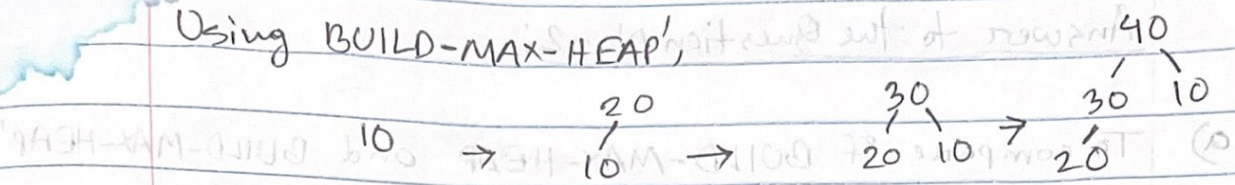 Using BUILD-MAX-HEAP',
40
20 30 30 10
10 → 10 → 20 10 → 20